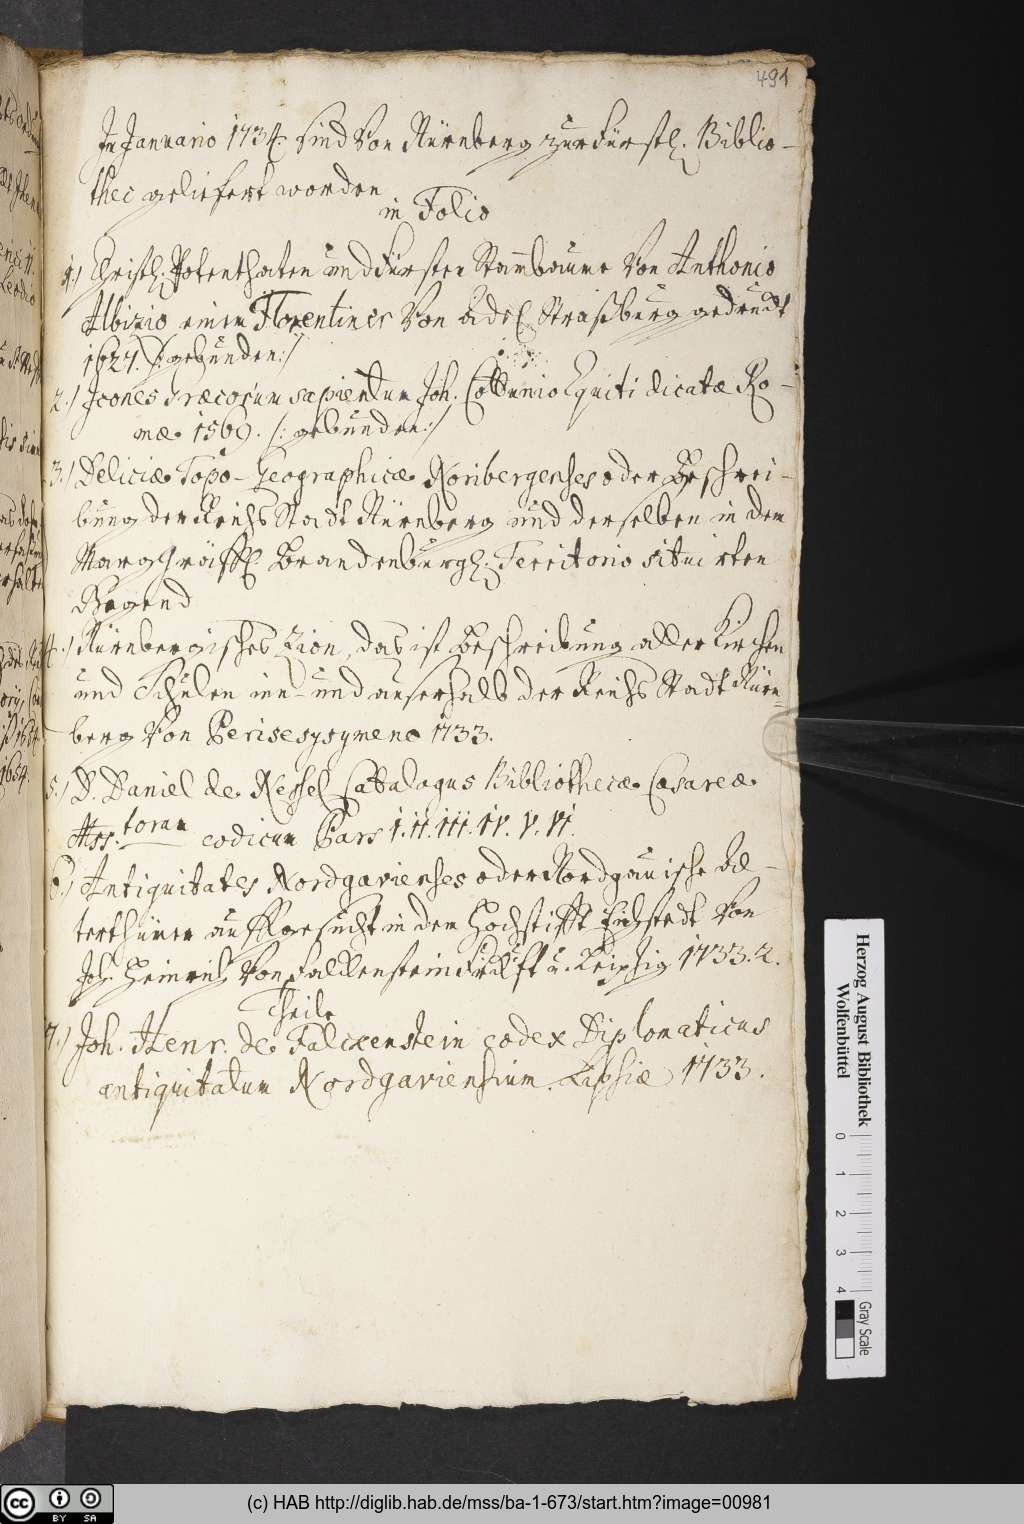 491
In Januario 1734. sind von Nürnberg zur Fürstl. Biblio-
thec geliefert worden
in Folio
1.) Christl. Potenthaten und Fürsten Stambaume von Anthonio
Albizio einem Florentiner von Adel Straßburg gedruckt
1627. /: gebunden :/
2.) Icones Græcorum sapientum Joh. Cottunio Equiti dicatæ Ro-
mæ 1569. /: gebunden :/
3.) Deliciæ Topo-Geographicæ Noribergenses oder Beschrei-
bung der Reichs Stadt Nürnberg und derselben in dem
Marggräffl. Brandenburgl. Territorio situirten
Gegend
4.) Nürnbergisches Zion, das ist Beschreibung aller Kirchen
und Schulen inn- und auserhalb der Reichs Stadt Nürn-
berg von Perisesysymeno 1733.
5.) D. Daniel de Nessel Catalogus Bibliothecæ Cæsareæ
Mss. torum codicum Pars I. II. III. IV. V. VI.
6.) Antiquitates Nordgavienses oder Nordgauische Al-
terthümer auffgesucht in dem Hochstifft Eichstedt von
Joh. Heinrich von Falckenstein Franckfurt u. Leipzig 1733. 2.
Theile
7.) Joh. Henr. de Falckenstein codex Diplomaticus
antiquitatum Nordgaviensium. Lipsiæ 1733.
Herzog August Bibliothek
Wolfenbüttel
0 1 2 3 4
Gray Scale
cc BY SA
(c) HAB http://diglib.hab.de/mss/ba-1-673/start.htm?image=00981